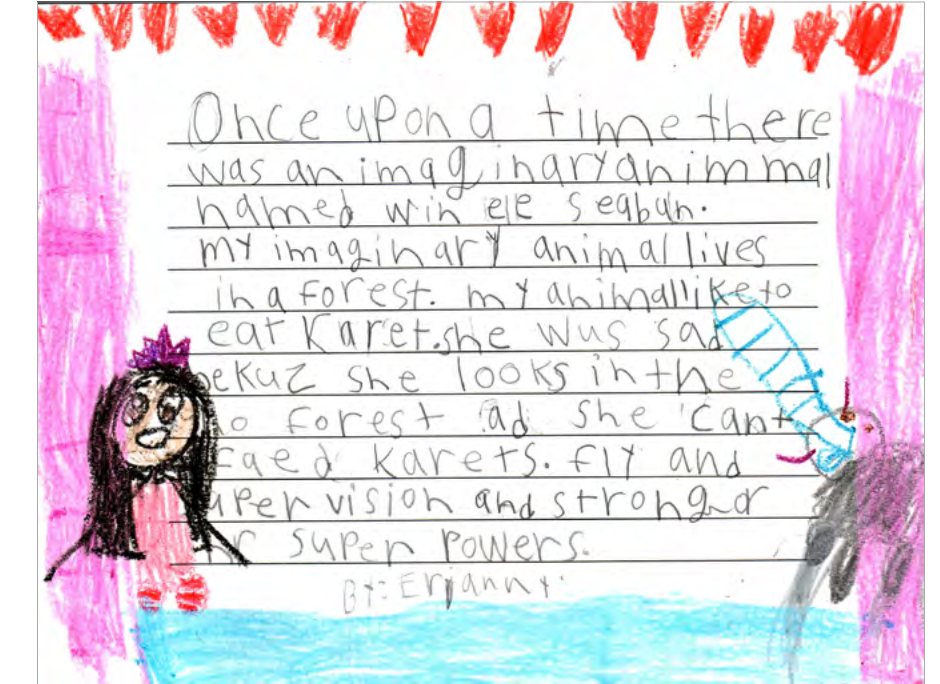 Once upon a time there
was an imaginary animmal
named win ele seaban.
my imaginary animal lives
in a forest. my animal like to
eat Karet. she wus sad
bekuz she looks in the
forest ad she cant
faed karets. fly and
super vision and strong
super powers.
By: Erjanny